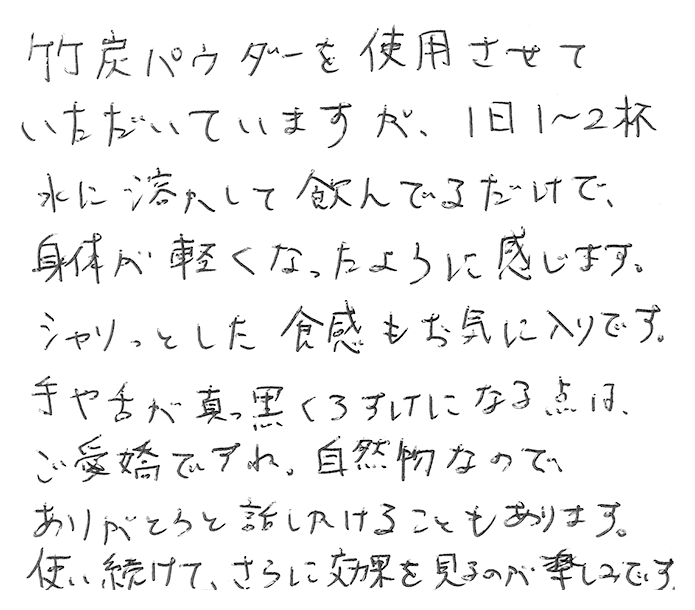 竹炭パウダーを使用させて
いただいていますが、1日1〜2杯
水に溶かして飲んでるだけで、
身体が軽くなったように感じます。
シャリっとした食感もお気に入りです。
手や舌が真っ黒くろすけになる点は、
ご愛嬌ですね。自然物なので、
ありがとうと話しかけることもあります。
使い続けて、さらに効果を見るのが楽しみです